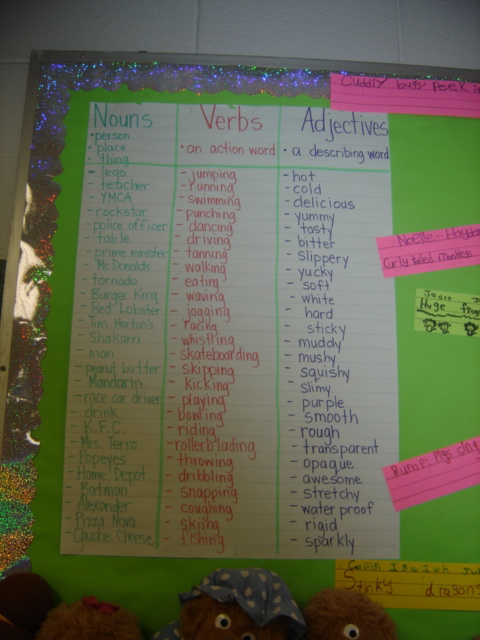 Cuddly bugs' peek in
Nouns
• person
• place
• thing
- lego
- teacher
- YMCA
- rockstar
- police officer
- table
- prime minister
- Mc Donalds
- tornado
- Burger King
- Red Lobster
- Tim Horton's
- Shakarri
- man
- peanut butter
- Mandarin
- race car driver
- drink
- K.F.C.
- Mrs. Terro
- Popeyes
- Home Depot
- Batman
- Alexander
- Pizza Nova
- Chuche Cheese
Verbs
• an action word
- jumping
- running
- swimming
- punching
- dancing
- driving
- tanning
- walking
- eating
- waving
- jogging
- racing
- whistling
- skateboarding
- skipping
- kicking
- playing
- bowling
- riding
- rollerblading
- throwing
- dribbling
- snapping
- coughing
- skiing
- fishing
Adjectives
• a describing word
- hot
- cold
- delicious
- yummy
- tasty
- bitter
- slippery
- yucky
- soft
- white
- hard
- sticky
- muddy
- mushy
- squishy
- slimy
- purple
- smooth
- rough
- transparent
- opaque
- awesome
- stretchy
- water proof
- rigid
- sparkly
Noelle-
Curly tailed
Huge
Stinky dragons